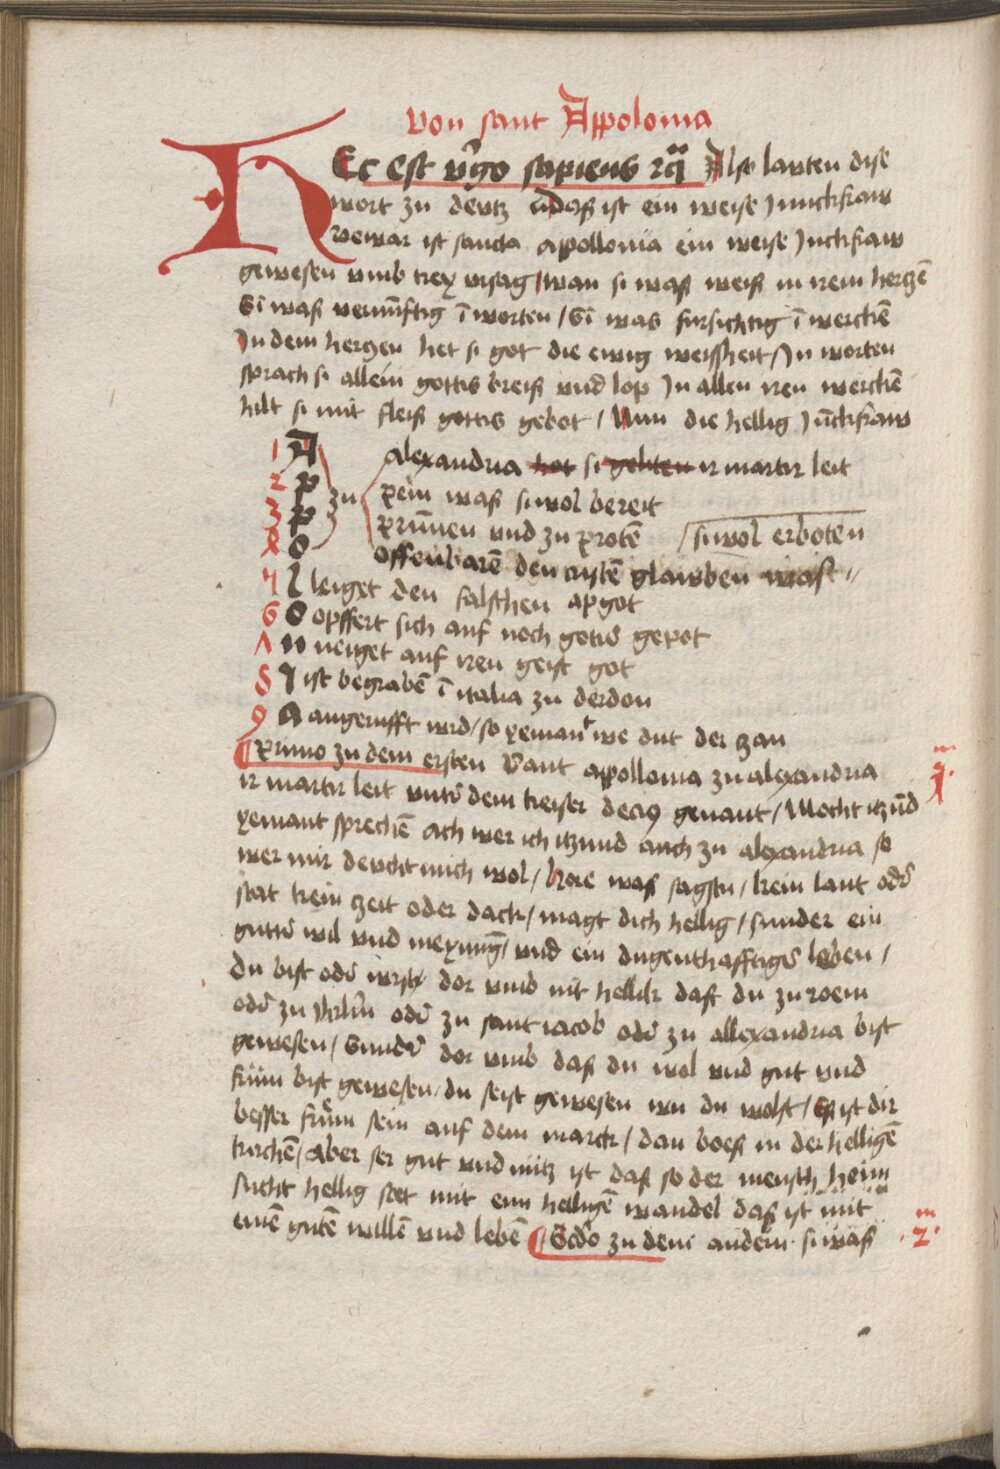 Von sant Appolonia
HEc est v̄go sapiens ꝛc̄ Also lauten dise
wort zu deutz v̄ daß ist ein weise Junckfraw
vewar ist sancta apollonia ein weise Juckfraw
gewesen vmb trey vrsag / wan si waß weiß in irem hertzē
Si waß vernūftig ī worten / Si was fursichtig ī werckē
In dem hertzen het si got die ewig weissheit / In worten
sprach si allein gottis breiß vnd lop In allen iren werckē
hilt si mit fleiß gottis gebot / Nun die hellig Jūckfraw
1 A alexandria hot si geliten ir martir leit
2 p zu pein waß si wol bereit
3 p prinnen vnd zu protē / si wol erboten
4 o offenbarē den cristē glawben wast //
5 l leiget den falschen apgot
6 o opffert sich auf noch gotis gepot
7 n neiget auf iren geist got
8 I ist begrabē ī italia zu derdon
9 A angerufft wird / so yemant we dut der zan
Primo zu dem ersten Sant appollonia zu alexandria
m 1
ir martir leit vnter dem keiser decius genant / Mocht itzūd
yemant sprechē ach wer ich itzund auch zu alexandria so
wer mir deucht mich wol / hore waß sagstu / kein lant oder
stat kein zeit oder dack / magt dich hellig / sunder ein
gutter wil vnd meynung / vnd ein dugenthafftigs leben /
du bist oder wirst dor vmb nit hellik dast du zu roem
oder zu oder zu sant iacob oder zu allexandria bist
gewesen / Sunder dor vmb daß du wol vnd gut vnd
frum bist gewesen / du seist gewesen wu du wolst / Eß ist dir
besser frum sein auf dem marck / dan boeß in der helligē
kirchē / aber ser gut vnd nutz ist daß so der mensch heim
sucht hellig stet mit eim helligē wandel daß ist mit
einē gutē willē vnd lebē Scdo zu dem andern si waß
m 2